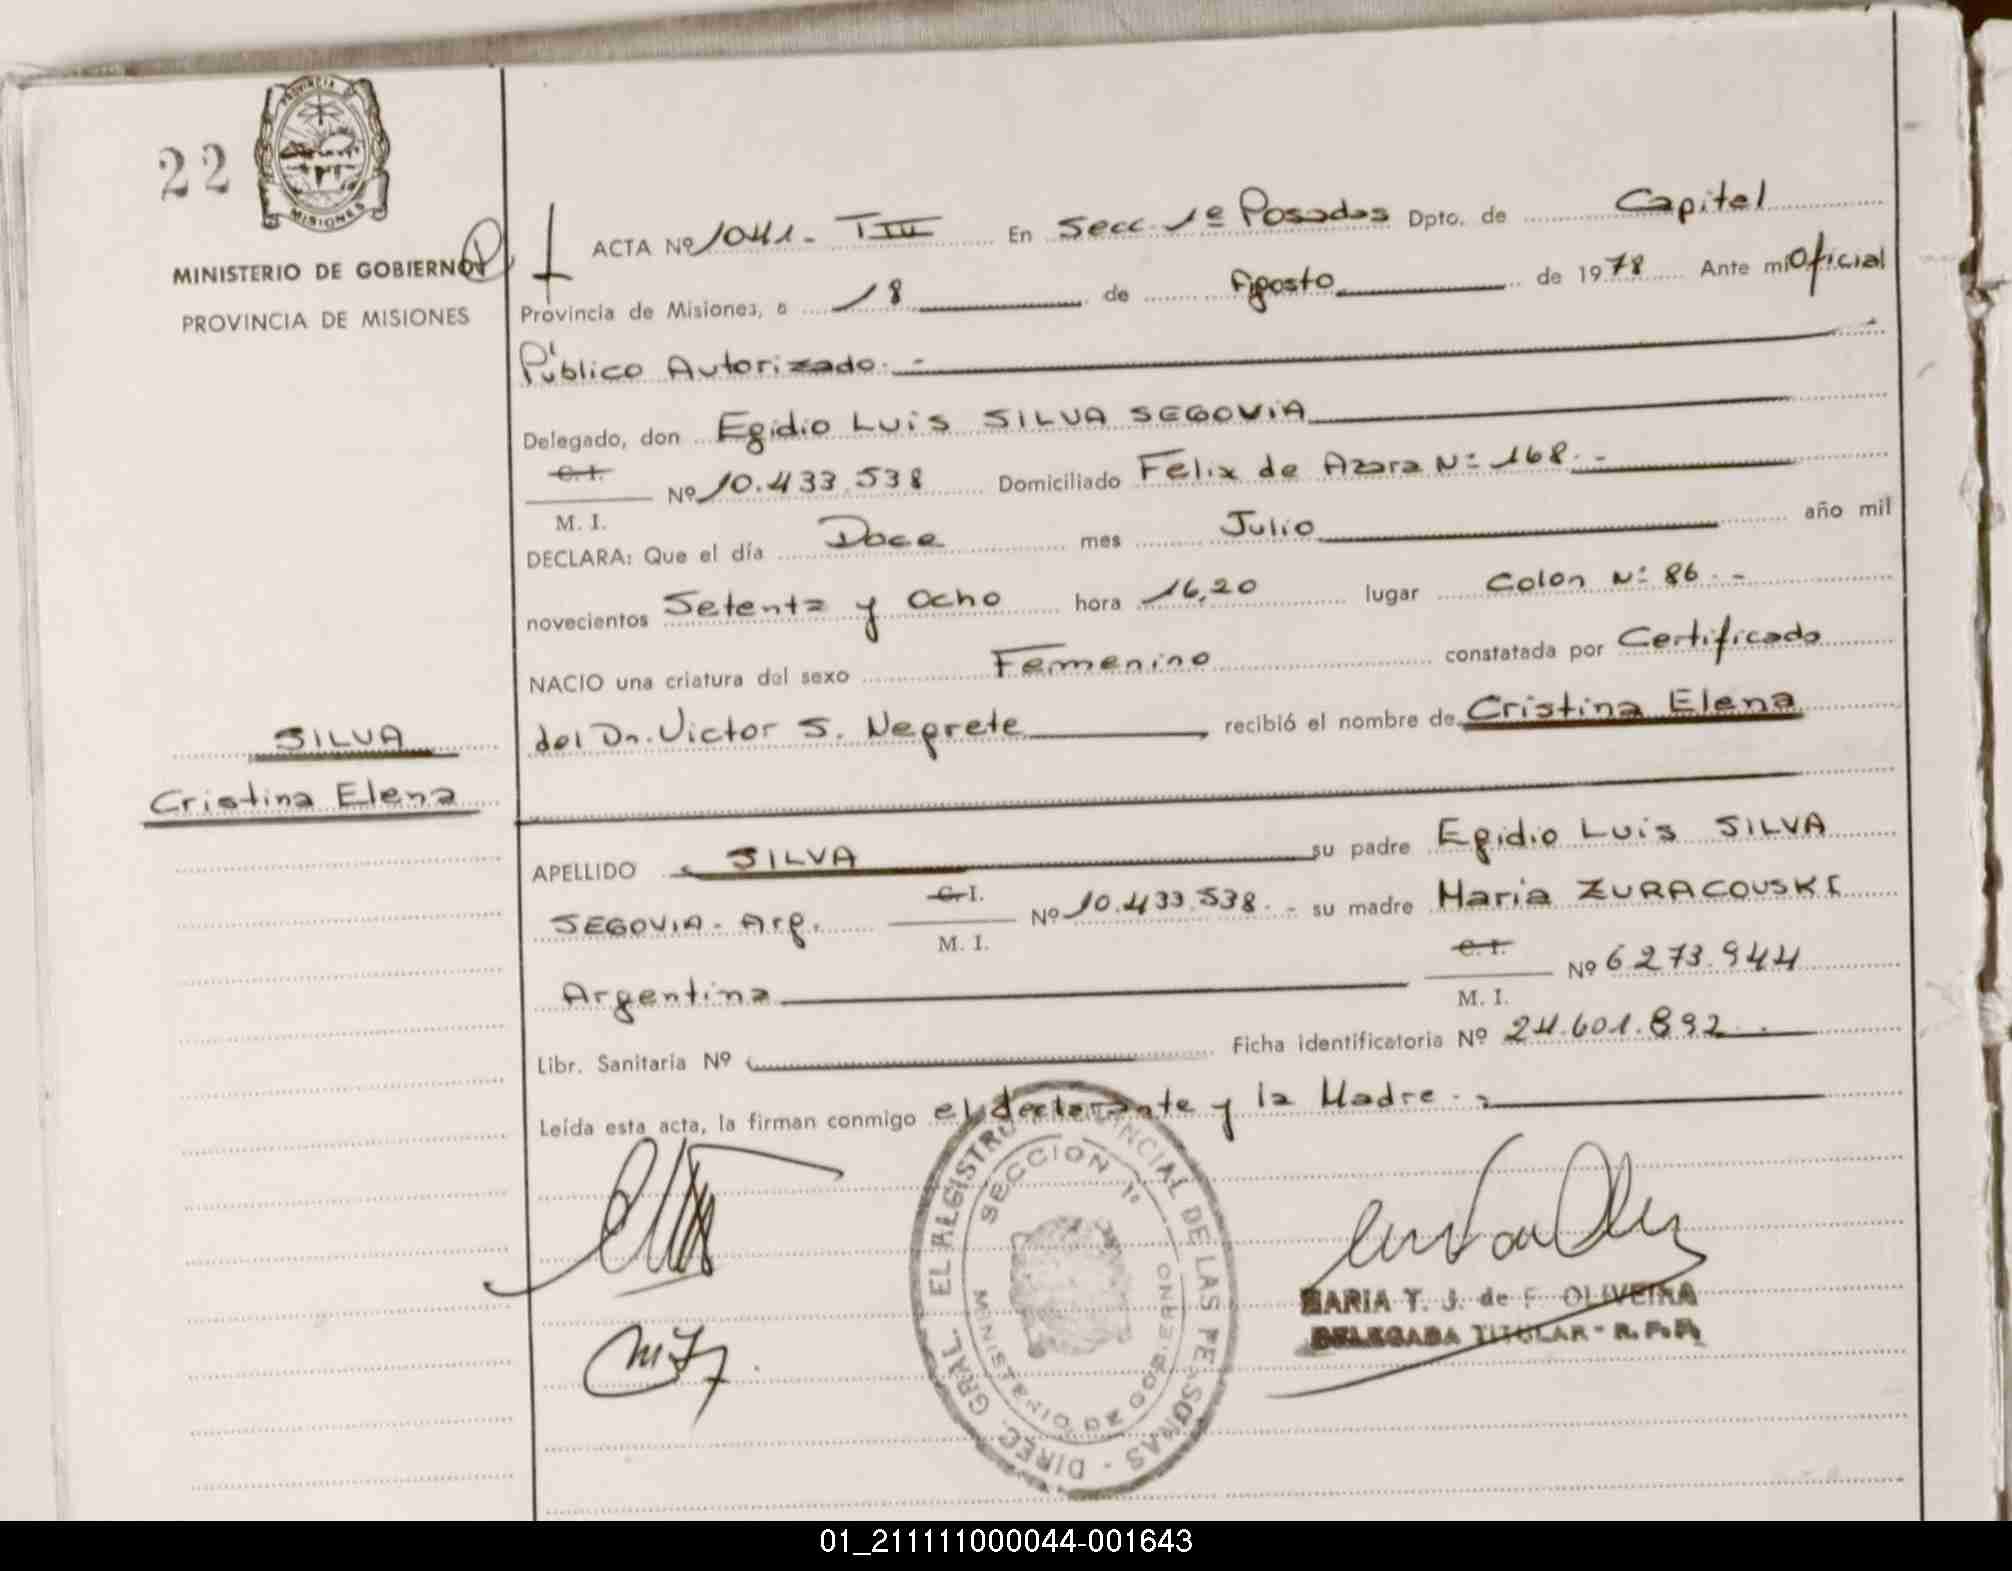 22
PROVINCIA DE
MISIONES
MINISTERIO DE GOBIERNO
PROVINCIA DE MISIONES
SILVA
Cristina Elena
ACTA Nº 1041 - TIII En Secc. 1º Posadas Dpto. de Capital
Provincia de Misiones, a 18 de Agosto de 1978 Ante mi Oficial
Público Autorizado. -
Delegado, don Egidio Luis SILVA SEGOVIA
C. I.
M. I. Nº 10.433.538 Domiciliado Felix de Azara Nº 168. -
DECLARA: Que el día Doce mes Julio año mil
novecientos Setenta y Ocho hora 16,20 lugar Colon Nº 86. -
NACIO una criatura del sexo Femenino constatada por Certificado
del Dr. Victor S. Negrete recibió el nombre de Cristina Elena
APELLIDO SILVA su padre Egidio Luis SILVA
SEGOVIA - Arg. C. I. M. I. Nº 10.433.538. - su madre Maria ZURACOUSKI
Argentina C. I. M. I. Nº 6.273.944
Libr. Sanitaria Nº Ficha identificatoria Nº 24.601.892. -
Leída esta acta, la firman conmigo el declarante y la Madre. -
DIREC. GRAL. DEL REGISTRO PROVINCIAL DE LAS PERSONAS
SECCION 1º
MINISTERIO DE GOBIERNO
MARIA T. J. de F. OLIVEIRA
DELEGADA TITULAR - R. P. P.
01_211111000044-001643